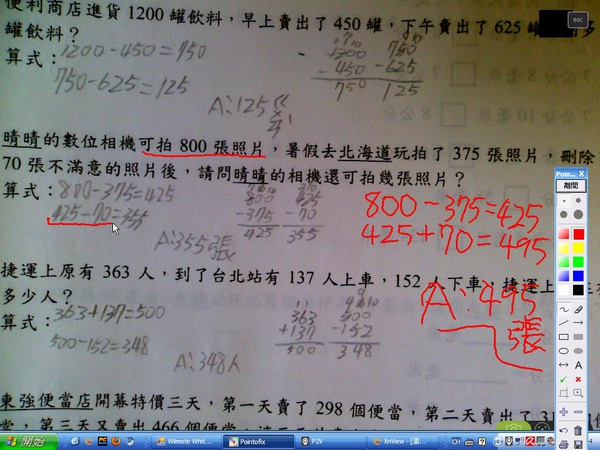 便利商店進貨 1200 罐飲料，早上賣出了 450 罐，下午賣出了 625 罐
罐飲料？
算式：1200-450=750
750-625=125
A:125
1200
-450
750
750
-625
125
晴晴的數位相機可拍 800 張照片，暑假去北海道玩拍了 375 張照片，刪除
70 張不滿意的照片後，請問晴晴的相機還可拍幾張照片？
算式：800-375=425
425-70=355
A:355張
800
-375
425
425
-70
355
800-375=425
425+70=495
A:495
張
捷運上原有 363 人，到了台北站有 137 人上車，152 人下車；捷運上
多少人？
算式：363+137=500
500-152=348
A:348人
363
+137
500
500
-152
348
東強便當店開幕特價三天，第一天賣了 298 個便當，第二天賣出了
當，第三天又賣出 466 個便當
esc
Poin...
離開
開始
Wiimote Whit...
Pointofix
P2V
XnView - [第...
CH